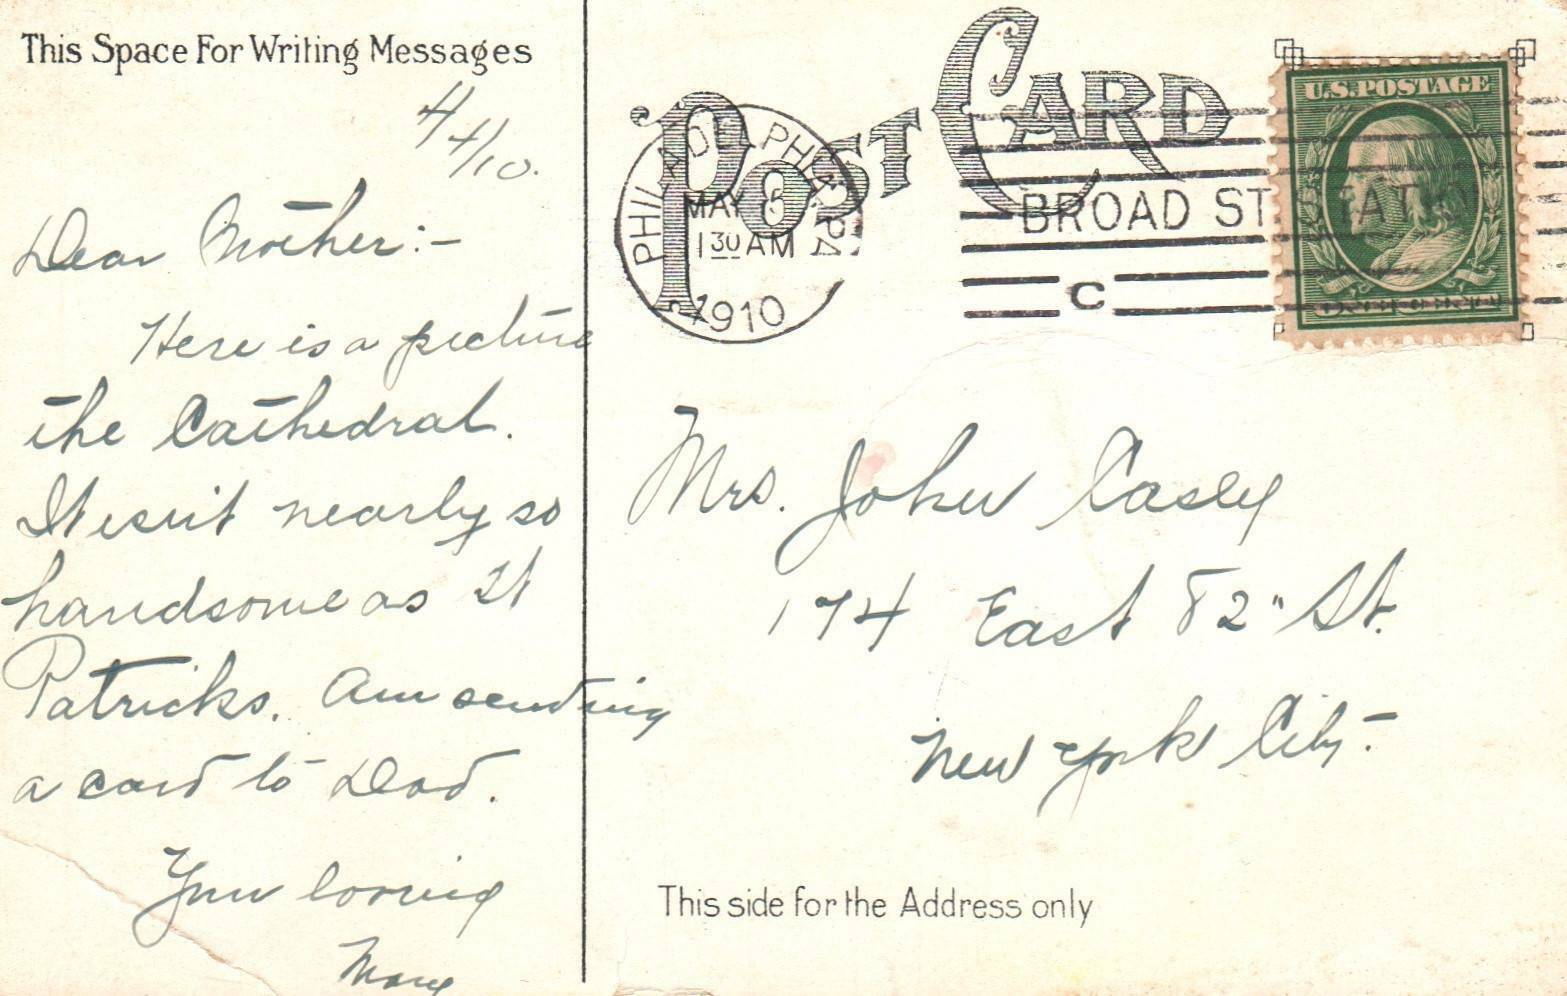 This Space For Writing Messages
4/4/10.
Dear Mother:-
Here is a picture
the Cathedral.
It isn't nearly so
handsome as St
Patricks. Am sending
a card to Dad.
Your loving
Mary
POST CARD
PHILADELPHIA, PA.
MAY
1 30 AM
1910
BROAD ST. STATION
C
U.S. POSTAGE
Mrs. John Casey
174 East 82" St.
New York City.
This side for the Address only